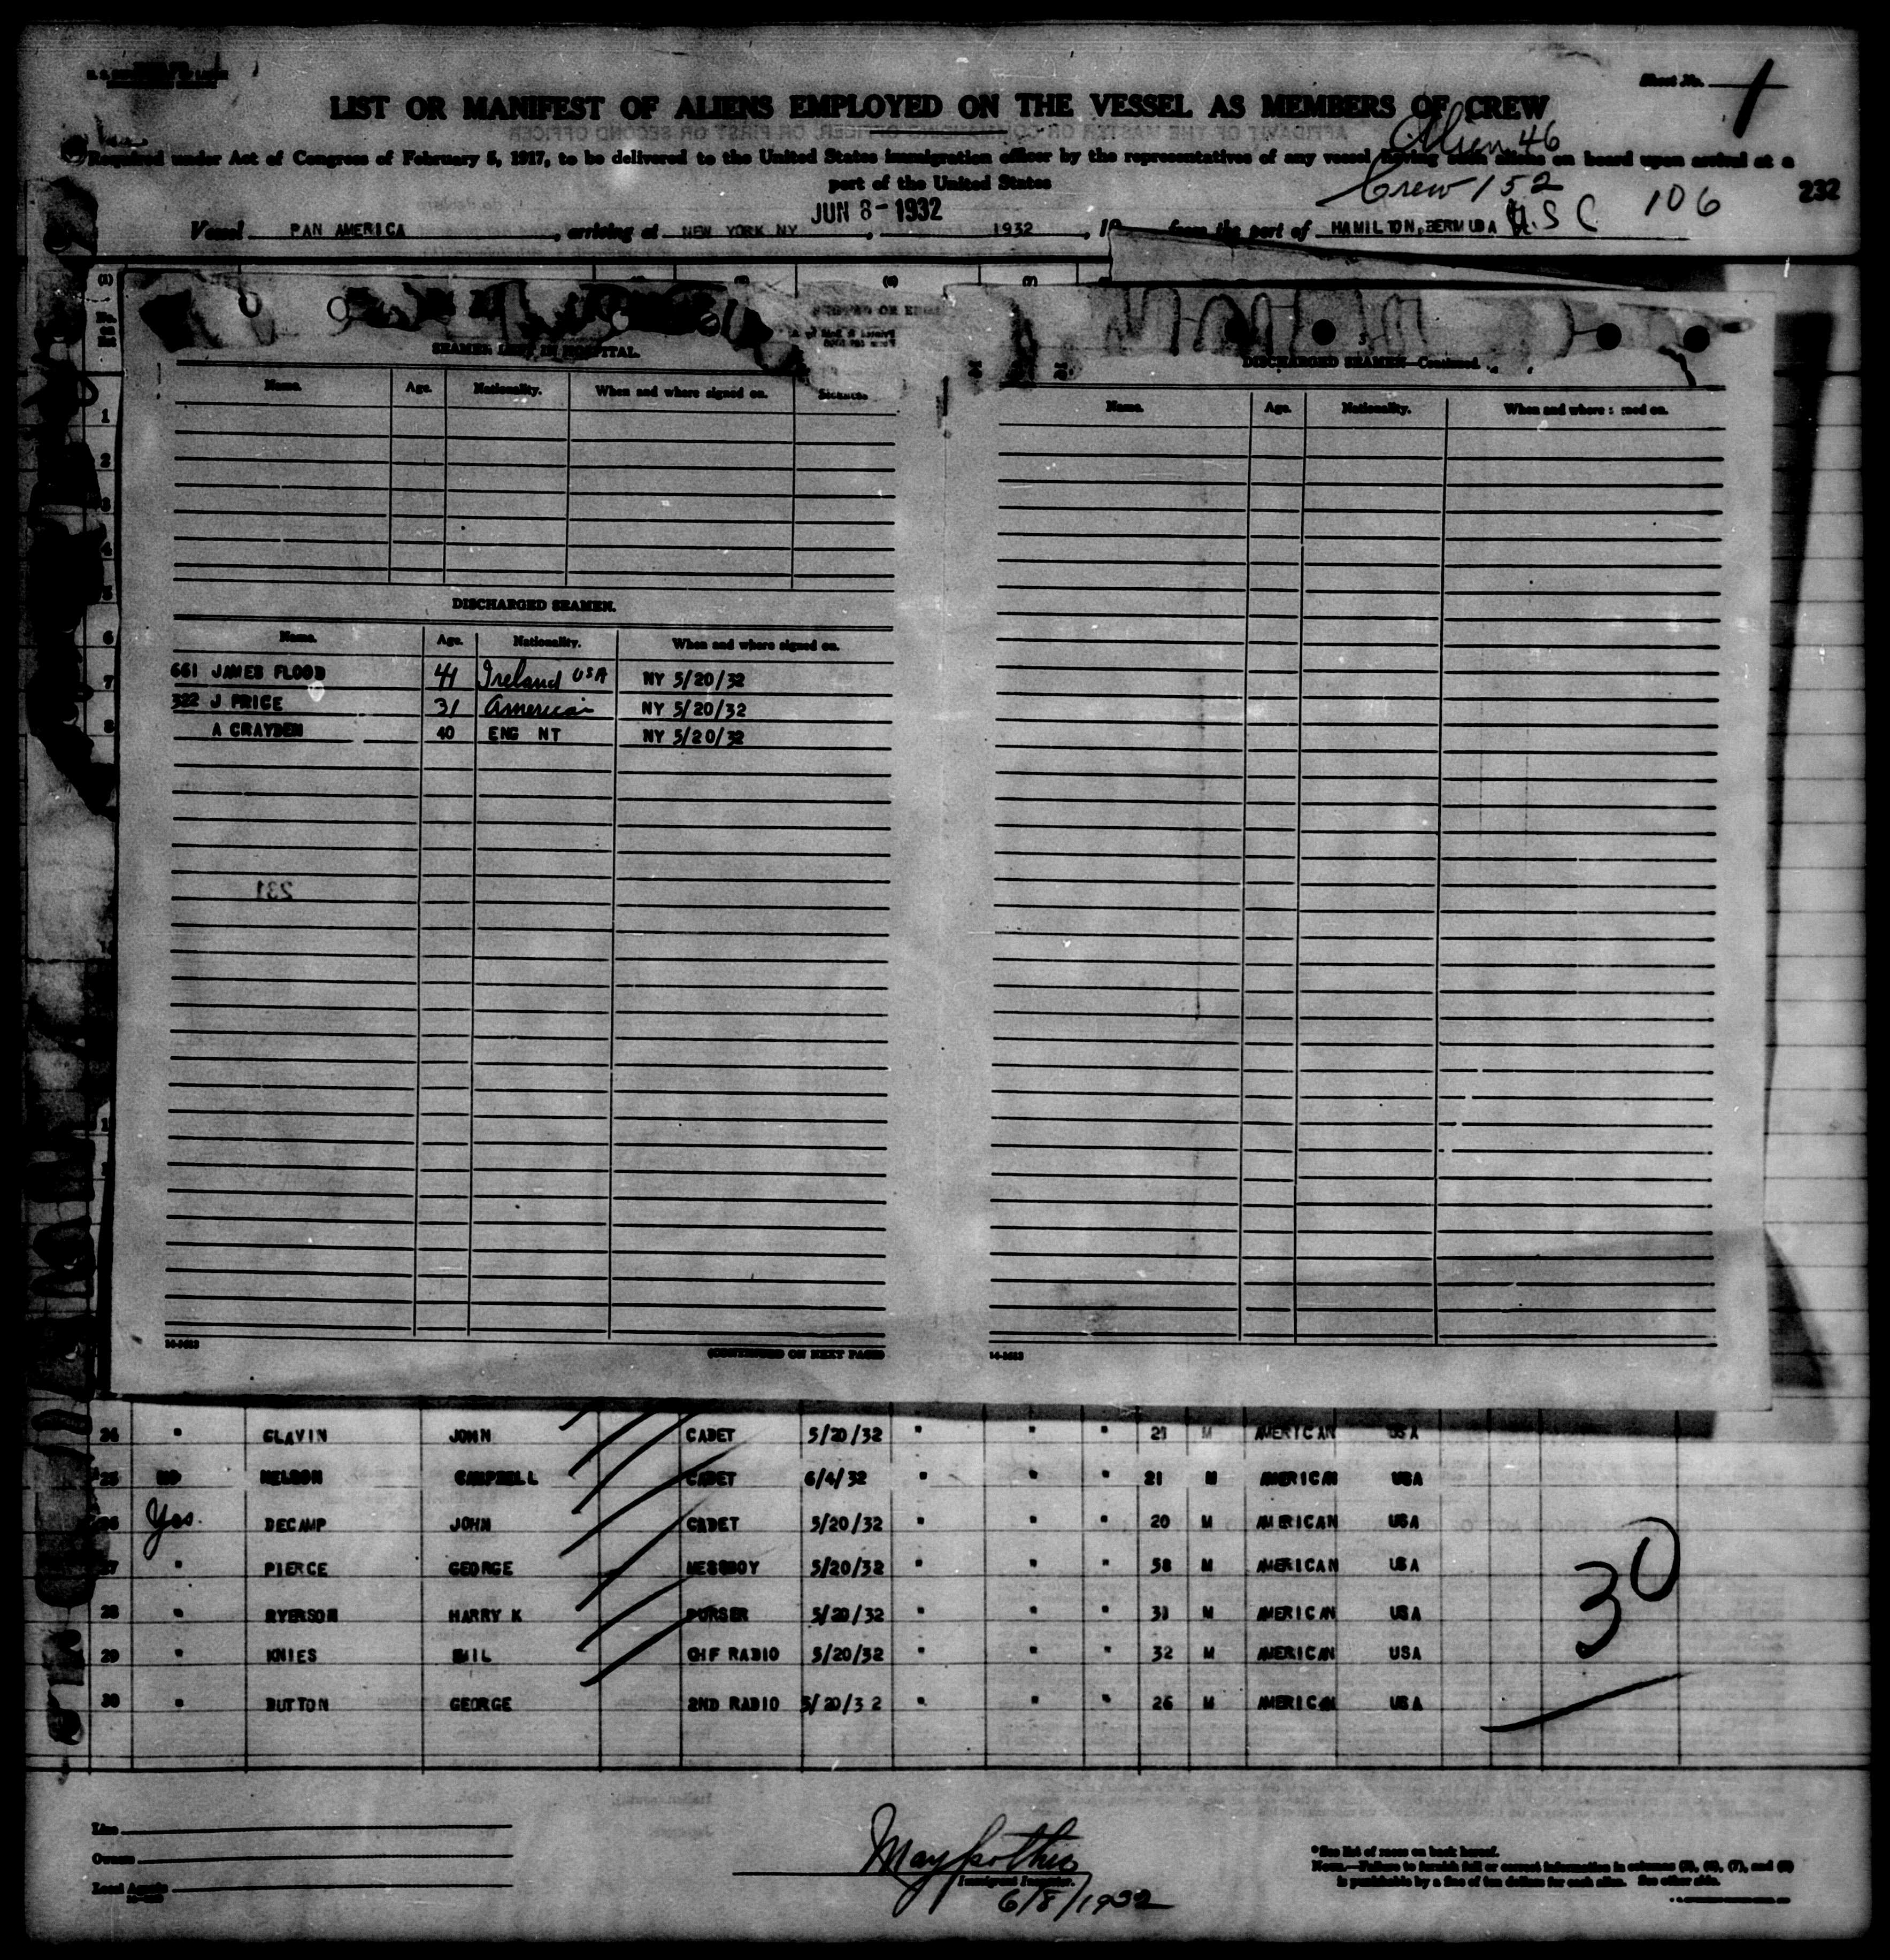 Sheet No. 1
LIST OR MANIFEST OF ALIENS EMPLOYED ON THE VESSEL AS MEMBERS OF CREW
Alien 46
Required under Act of Congress of February 5, 1917, to be delivered to the United States immigration officer by the representatives of any vessel having such aliens on board upon arrival at a
port of the United States
Crew 152
232
JUN 8-1932
Vessel PAN AMERICA, arriving at NEW YORK NY, 1932, 19 from the port of HAMILTON, BERMUDA U.S C 106
(1) (6) (7)
SEAMEN LEFT IN HOSPITAL.
DISCHARGED SEAMEN—Continued.
Name. Age. Nationality. When and where signed on. Sickness.
Name. Age. Nationality. When and where : ned on.
1
2
3
4
5
DISCHARGED SEAMEN.
6
Name. Age. Nationality. When and where signed on.
7
661 JAMES FLOOD 41 Ireland USA NY 5/20/32
322 J PRICE 31 American NY 5/20/32
8
A CRAYDEN 40 ENG NT NY 5/20/32
231
14-1613
(CONTINUED ON NEXT PAGE)
14-1613
24 " GLAVIN JOHN CADET 5/20/32 " " " 21 M AMERICAN USA
25 NO NELSON CAMPBELL CADET 6/4/32 " " " 21 M AMERICAN USA
26 Yes DECAMP JOHN CADET 5/20/32 " " " 20 M AMERICAN USA
27 " PIERCE GEORGE MESSBOY 5/20/32 " " " 58 M AMERICAN USA
28 " RYERSON HARRY K PURSER 5/20/32 " " " 31 M AMERICAN USA
30
29 " KNIES EMIL CHF RADIO 5/20/32 " " " 32 M AMERICAN USA
30 " DUTTON GEORGE 2ND RADIO 5/20/32 " " " 26 M AMERICAN USA
Line
Owners
Local Agents
Immigrant Inspector.
6/8/1932
*See list of races on back hereof.
NOTE.—Failure to furnish full or correct information in columns (3), (6), (7), and (8)
is punishable by a fine of ten dollars for each alien. See other side.